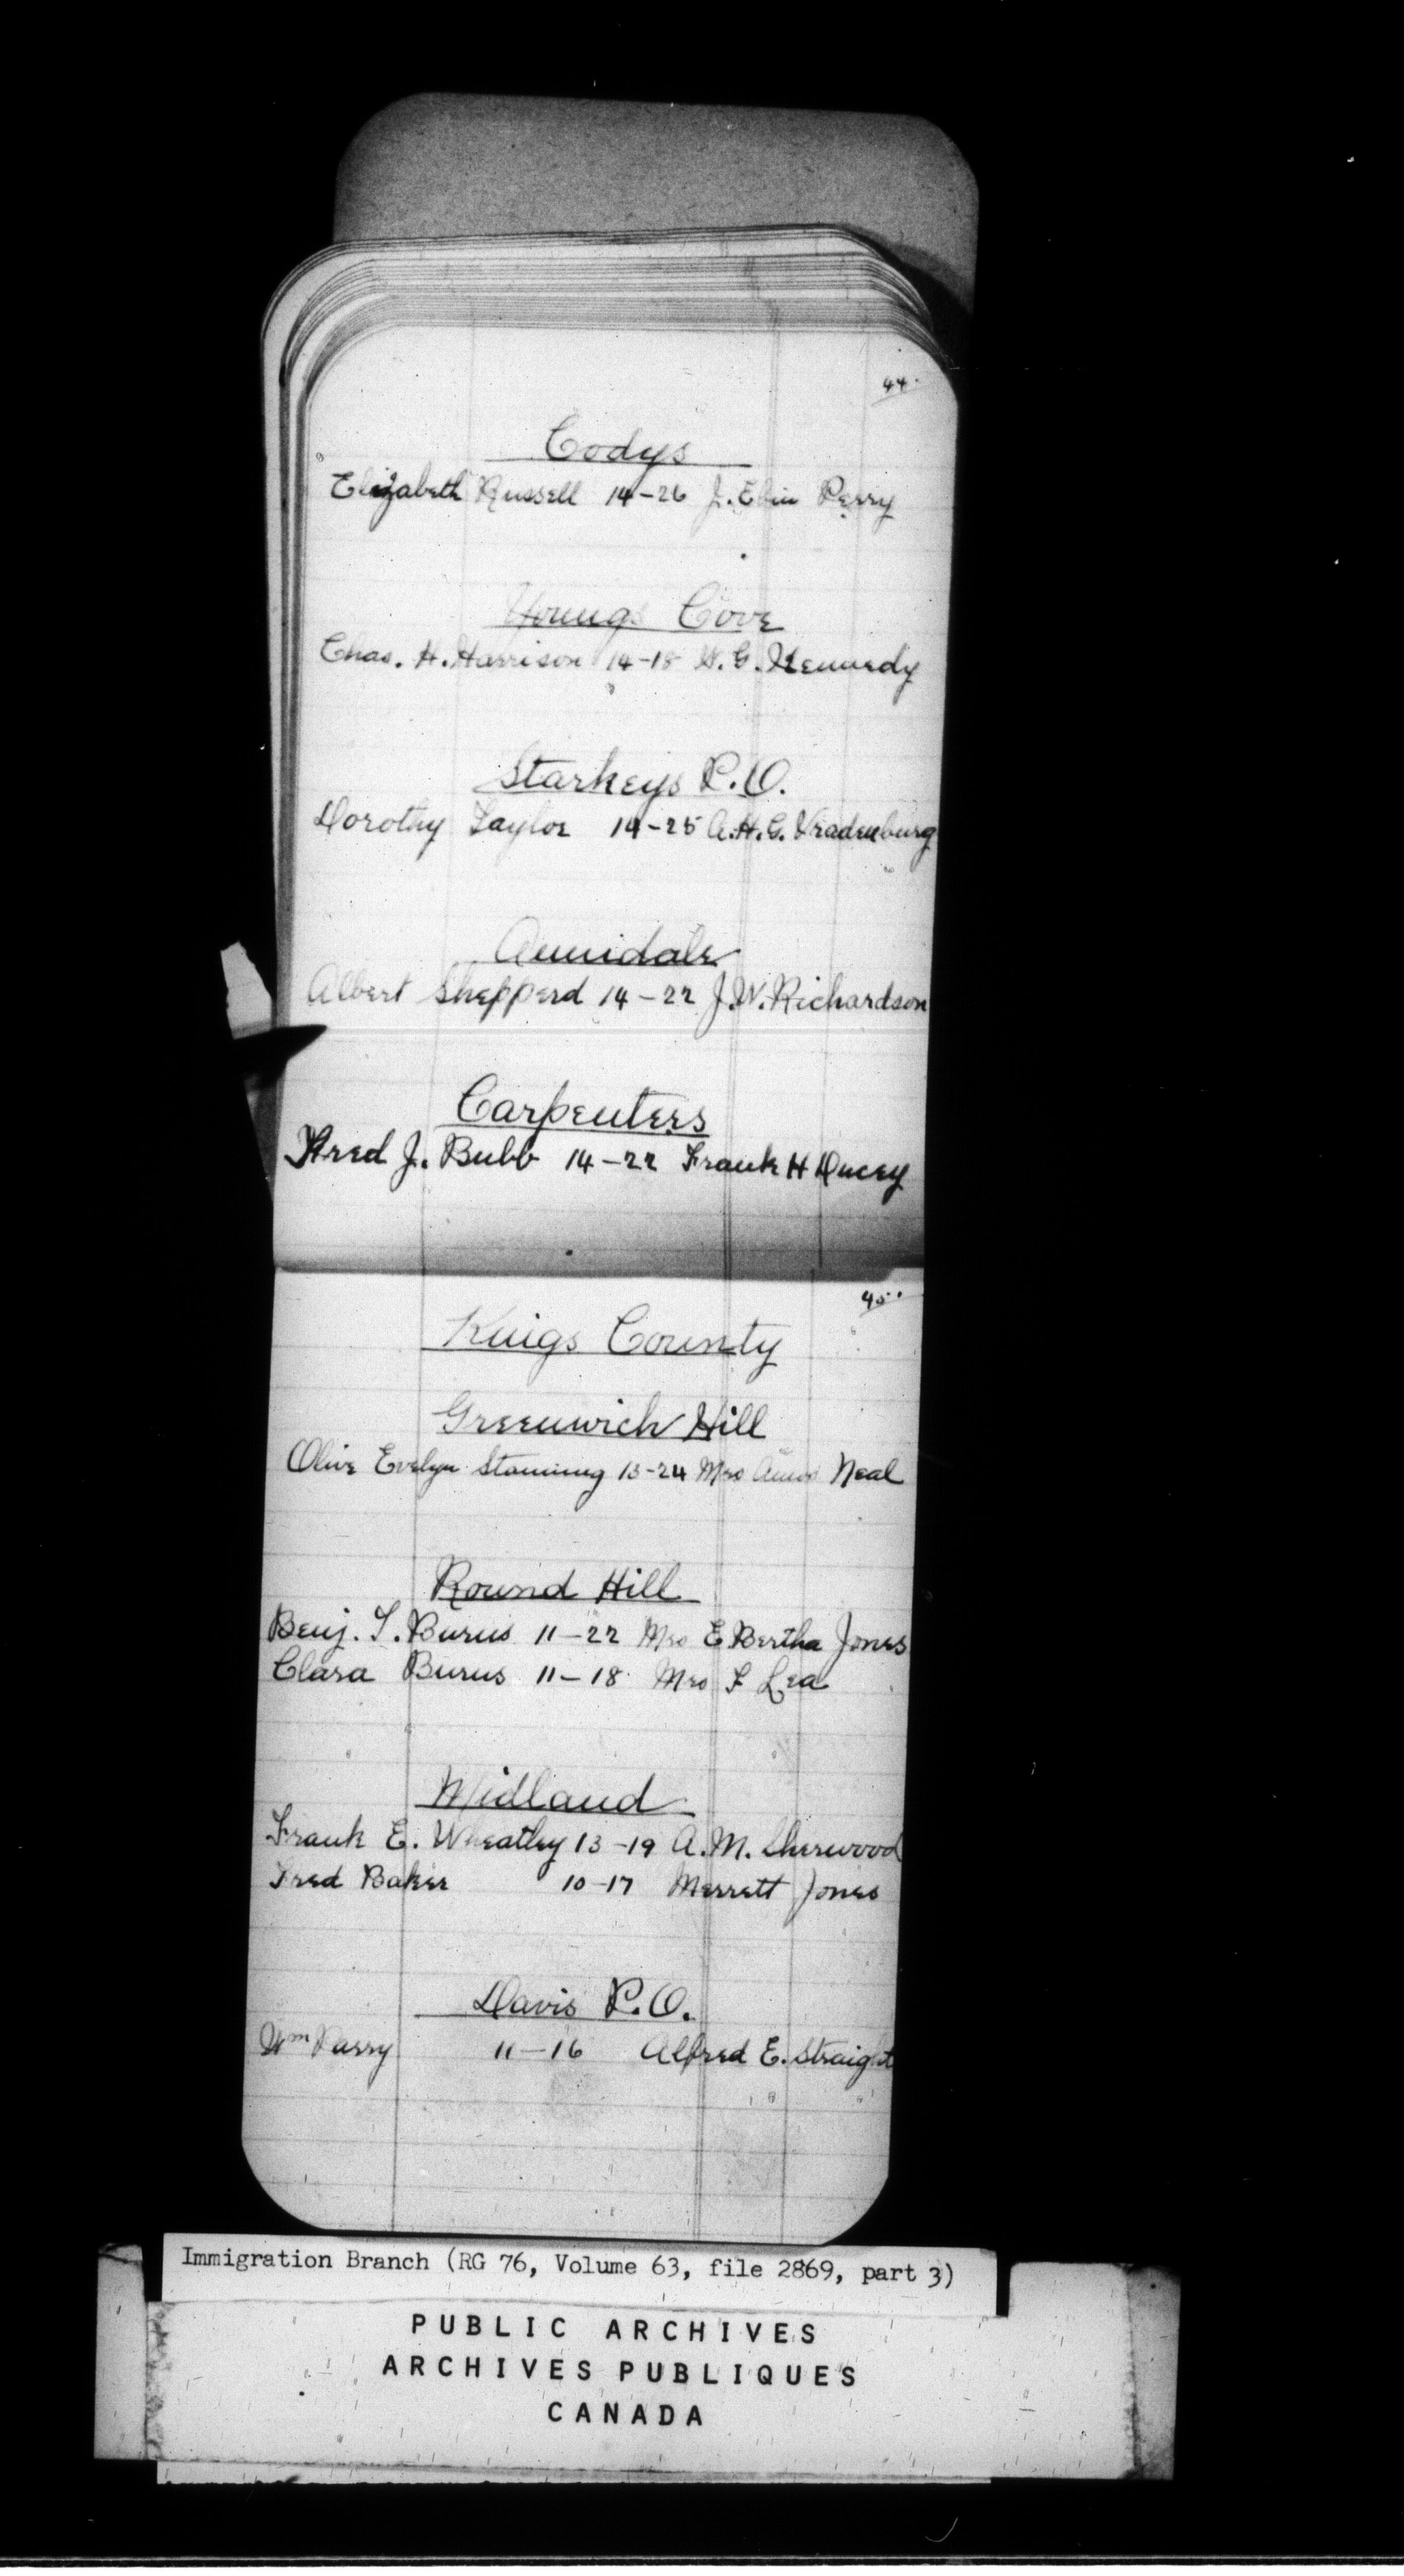 44.
Codys
Elizabeth Russell 14-26 J. Elvin Perry
Youngs Cove
Chas. H. Harrison 14-18 W. G. Kennedy
Starkeys P.O.
Dorothy Taylor 14-25 A.H.G. Vradenburg
Annidale
Albert Shepperd 14-22 J.W. Richardson
Carpenters
Fred J. Bubb 14-22 Frank H Ducey
45.
Kings County
Greenwich Hill
Olive Evelyn Stanning 13-24 Mrs Amos Neal
Round Hill
Benj. T. Burns 11-22 Mrs E Bertha Jones
Clara Burns 11-18 Mrs F Lea
Midland
Frank E. Wheatley 13-19 A.M. Sherwood
Fred Baker 10-17 Merrett Jones
Davis P.O.
Wm Parry 11-16 Alfred E. Straight
Immigration Branch (RG 76, Volume 63, file 2869, part 3)
PUBLIC ARCHIVES
ARCHIVES PUBLIQUES
CANADA